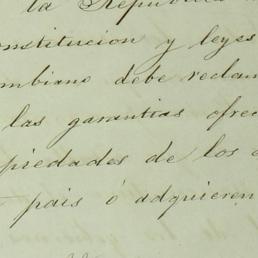 la República
onstitucion y leyes
mbiano debe reclam
las garantias ofrec
piedades de los
pais ó adquieren